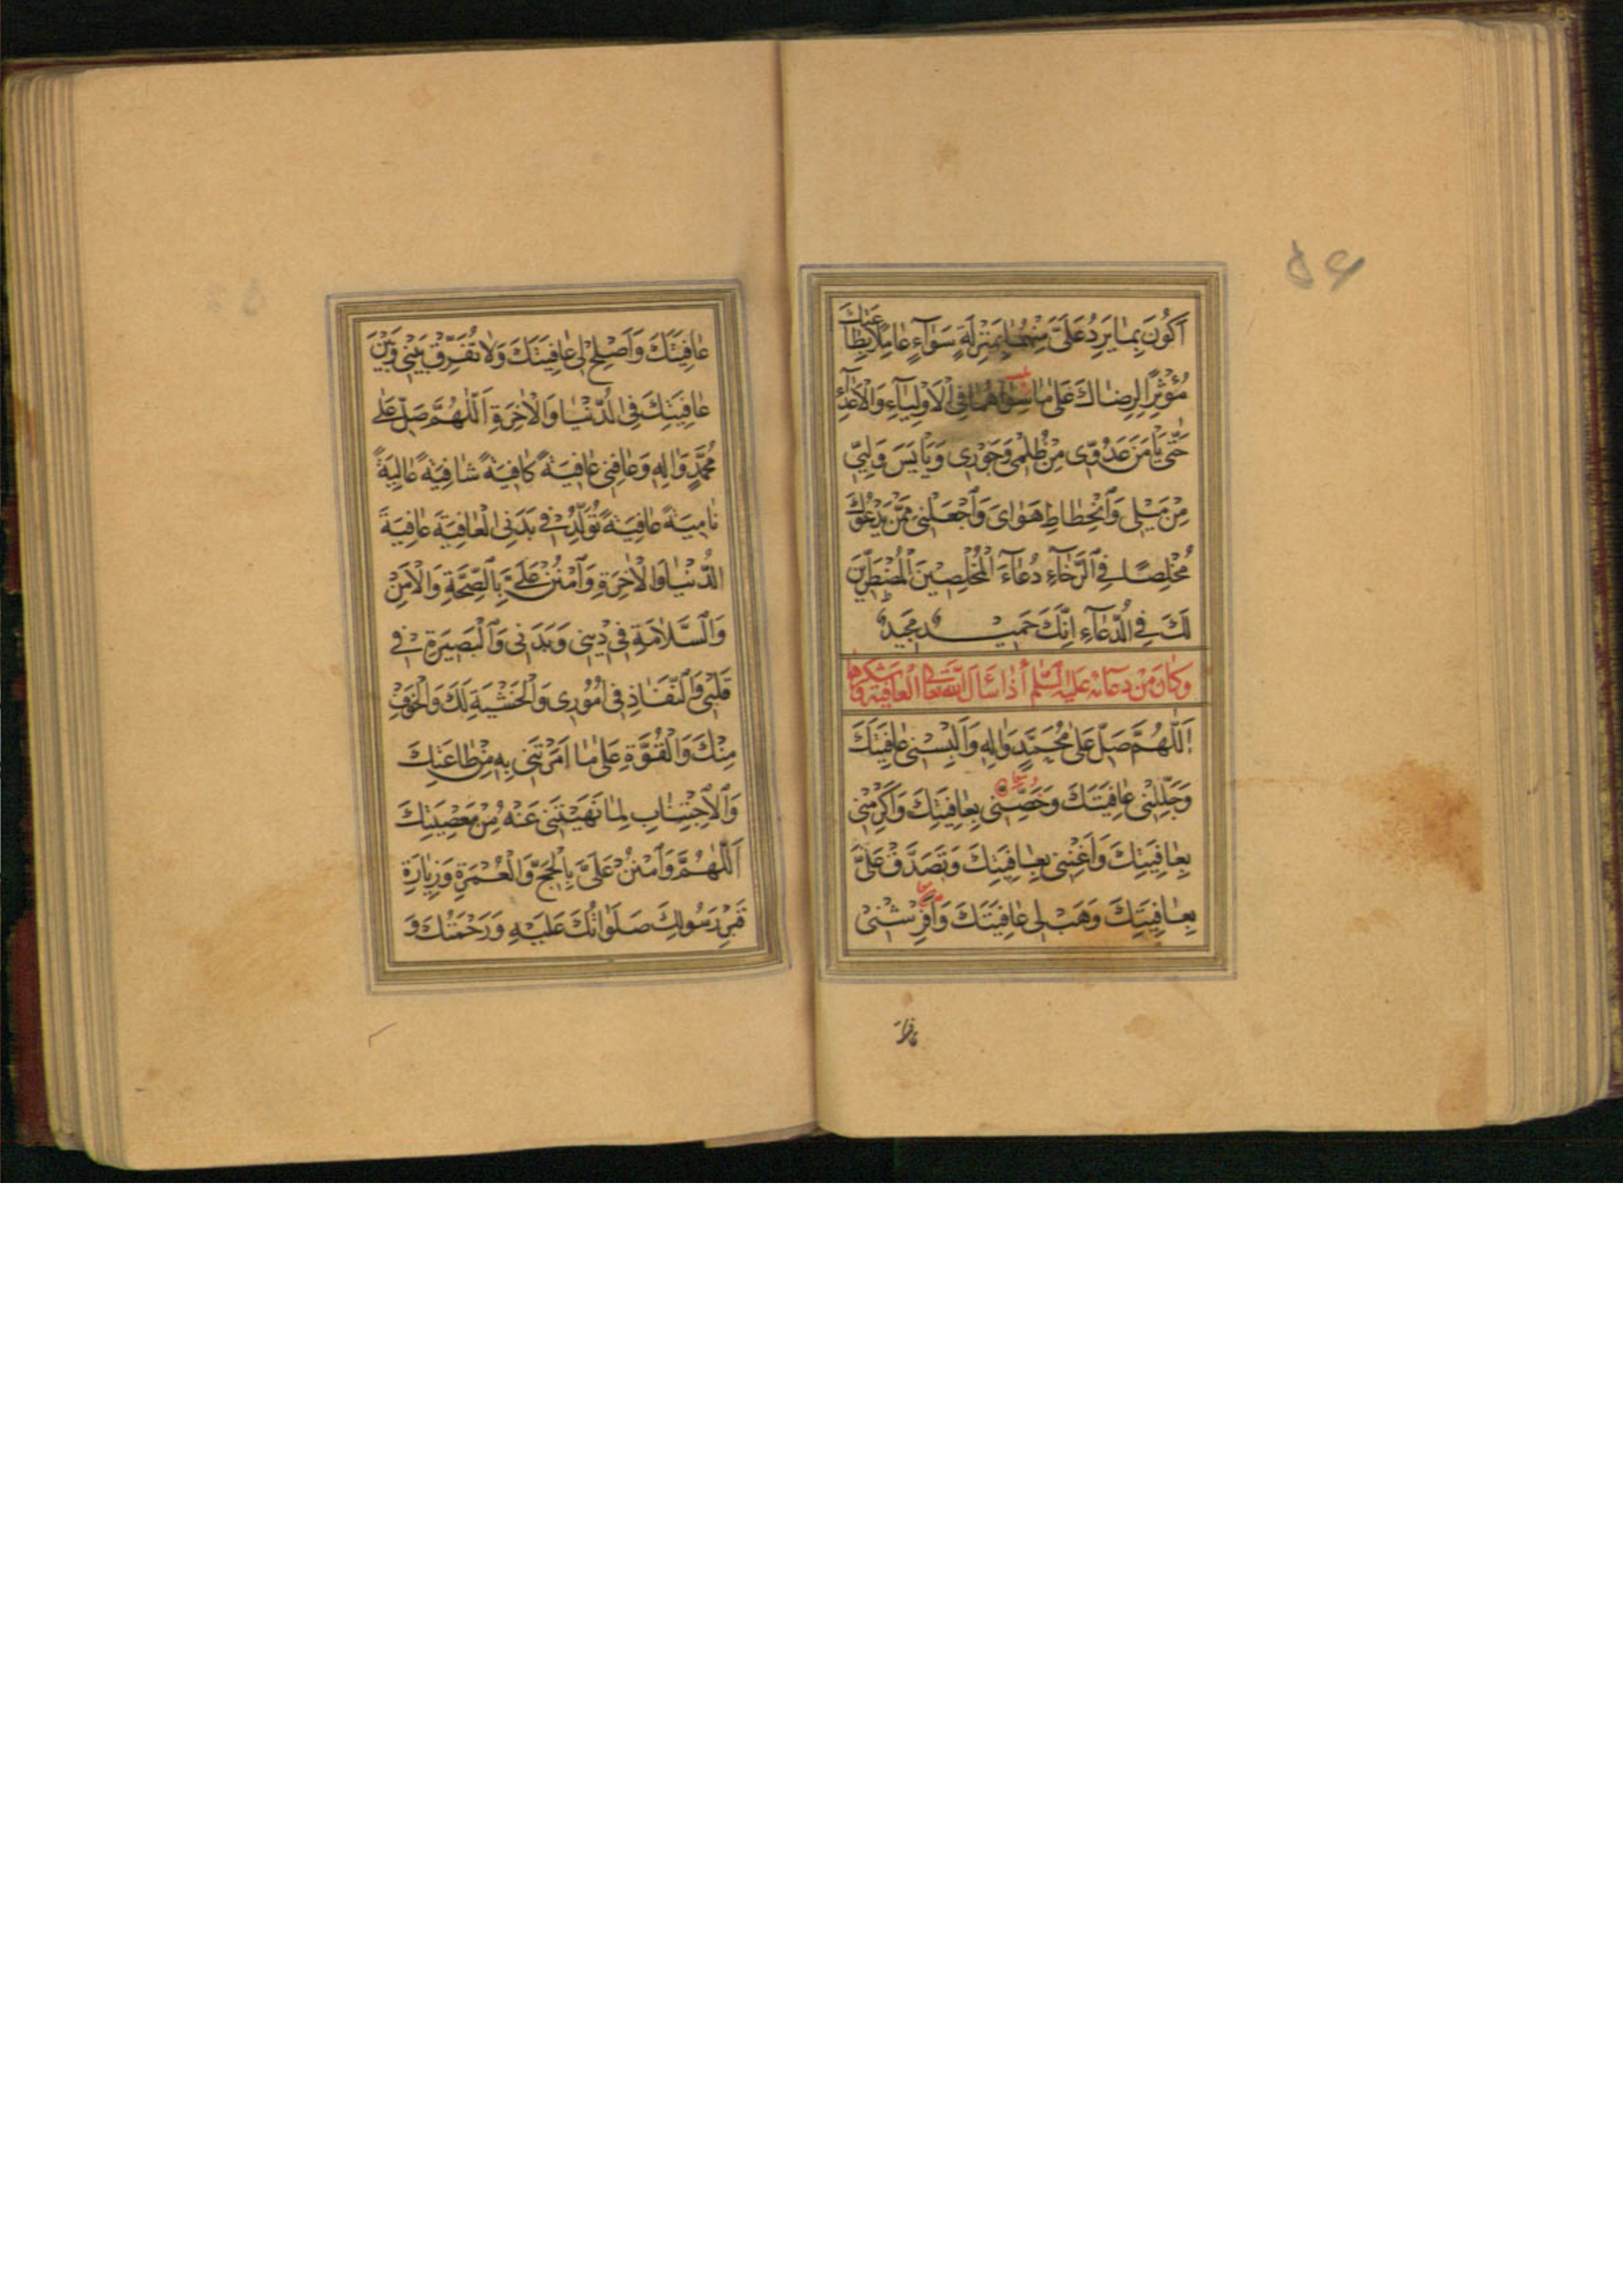 ۵۶
اَكُونَ بِمٰا يَرِدُ عَلَىَّ مِنْهُمٰا بِمَنْزِلَةٍ سَوٰآءٍ عٰامِلًا بِطٰاعَتِكَ
مُؤْثِرًا لِرِضٰاكَ عَلىٰ مٰا سِوٰاهُمٰا فِى الْاَوْلِيٰآءِ وَالْاَعْدٰآءِ
حَتّٰى يَأْمَنَ عَدُوّى مِنْ ظُلْمى وَجَوْرى وَيَأْيَسَ وَلِيّى
مِنْ مَيْلى وَانْحِطٰاطِ هَوٰاىَ وَاجْعَلْنى مِمَّنْ يَدْعُوكَ
مُخْلِصًا فِى الرَّخٰآءِ دُعٰآءَ الْمُخْلِصينَ الْمُضْطَرّينَ
لَكَ فِى الدُّعٰآءِ اِنَّكَ حَميدٌ مَجيدٌ
وكان من دعائه عليه السلم اذا سأل الله تعالى العافية وشكرها
اَللّٰهُمَّ صَلِّ عَلىٰ مُحَمَّدٍ وَاٰلِهِ وَاَلْبِسْنى عٰافِيَتَكَ
وَجَلِّلْنى عٰافِيَتَكَ وَخَصِّنى بِعٰافِيَتِكَ وَاَكْرِمْنى
بِعٰافِيَتِكَ وَاَغْنِنى بِعٰافِيَتِكَ وَتَصَدَّقْ عَلَىَّ
بِعٰافِيَتِكَ وَهَبْ لى عٰافِيَتَكَ وَاَفْرِشْنى
عٰافِيَتَكَ وَاَصْلِحْ لى عٰافِيَتَكَ وَلاٰ تُفَرِّقْ بَيْنى وَبَيْنَ
عٰافِيَتِكَ فِى الدُّنْيٰا وَالْاٰخِرَةِ اَللّٰهُمَّ صَلِّ عَلىٰ
مُحَمَّدٍ وَاٰلِهِ وَعٰافِنى عٰافِيَةً كٰافِيَةً شٰافِيَةً عٰالِيَةً
نٰامِيَةً عٰافِيَةً تُوَلِّدُ فى بَدَنِى الْعٰافِيَةَ عٰافِيَةَ
الدُّنْيٰا وَالْاٰخِرَةِ وَامْنُنْ عَلَىَّ بِالصِّحَّةِ وَالْاَمْنِ
وَالسَّلاٰمَةِ فى دينى وَبَدَنى وَالْبَصيرَةِ فى
قَلْبى وَالنَّفٰاذِ فى اُمُورى وَالْخَشْيَةِ لَكَ وَالْخَوْفِ
مِنْكَ وَالْقُوَّةِ عَلىٰ مٰا اَمَرْتَنى بِهِ مِنْ طٰاعَتِكَ
وَالْاِجْتِنٰابِ لِمٰا نَهَيْتَنى عَنْهُ مِنْ مَعْصِيَتِكَ
اَللّٰهُمَّ وَامْنُنْ عَلَىَّ بِالْحَجِّ وَالْعُمْرَةِ وَزِيٰارَةِ
قَبْرِ رَسُولِكَ صَلَوٰاتُكَ عَلَيْهِ وَرَحْمَتُكَ وَ